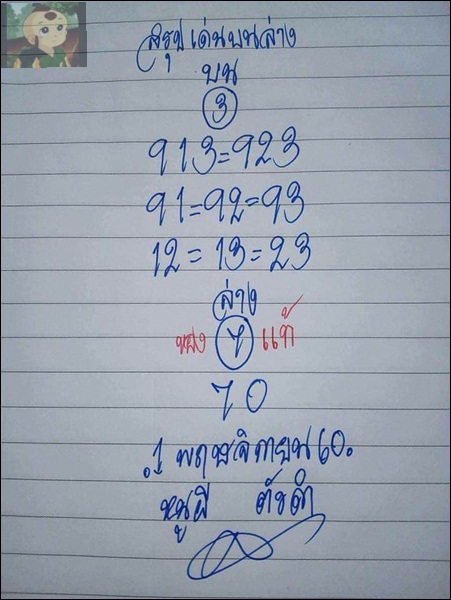 สรุปเด่นบนล่าง
บน
3
913=923
91=92=93
12=13=23
ล่าง
ของ 7 แท้
70
1 พฤศจิกายน 60.
หนูผี ตัวดำ